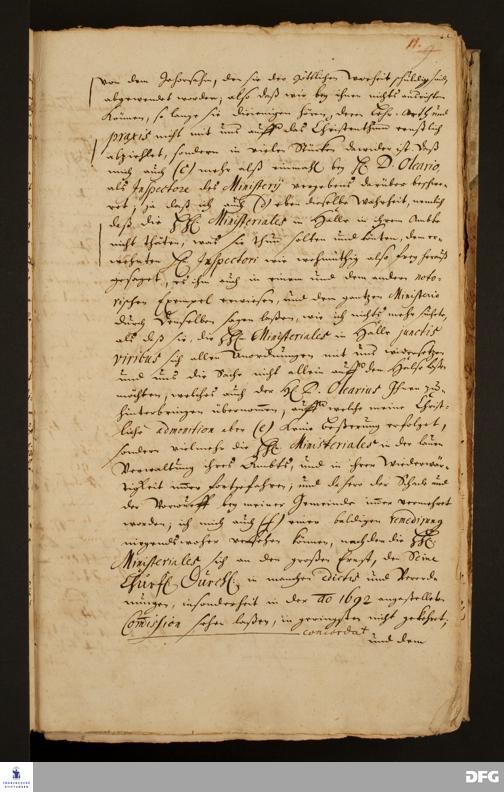 11.
von dem Gehorsahm, den sie der Göttlichen Warheit schuldig sind,
abgewendet worden, also daß wir bey ihnen nichts ausrichten
können, so lange sie diejenigen hören, deren Lehr-Arth und
praxis nicht mit uns auff das Christenthum
abziehlet, sondern in vielen Stücken darwider ist. Daß
mich auch (c) mehr alß einmahl bey H. D. Oleario,
als Inspectore des Ministerij vergebens darüber beschwe-
ret, ja daß ich auch (d) eben dieselbe Wahrheit, nemlich
daß die HH. Ministeriales in Halle in ihrem Ambte
nicht thäten, was sie thun solten und könten, dem er-
wehnten H. Inspectori wie wehmüthig also frey heraus
gesaget, es ihm auch in einem und dem andern noto-
rischen Exempel erwiesen, und dem gantzen Ministerio
durch denselben sagen laßen, wie ich nichts mehr
als daß sie, die HH. Ministeriales in Halle junctis
viribus sich allen Unordnungen mit uns widersetzen
und uns die Sache nicht allein auff dem Halse laßen
möchten, welches auch der H. D. Olearius Ihnen zu
hinterbringen übernommen, auff welche meine Christ-
liche admonition aber (e) keine Beßerung erfolget,
sondern vielmehr die HH. Ministeriales in der lauen
Verwaltung ihres Ambts, und in ihrer Wiederwär-
tigkeit immer fortgefahren, und dahero der Schade und
der Vorwurff bey meiner Gemeinde immer vermehret
worden, ich mich auch (f) einer baldigen remedijrung
nirgends woher versehen können, nachdem die HH.
Ministeriales sich an den großen Ernst, den Seine
Churfl. Durchl. in manchen Edictis und Verord-
nungen, insonderheit in der Ao 1692 angestelleten
Comission sehen laßen, im geringsten nicht gekehret,
concordat
und dem
FRANCKESCHE STIFTUNGEN
DFG